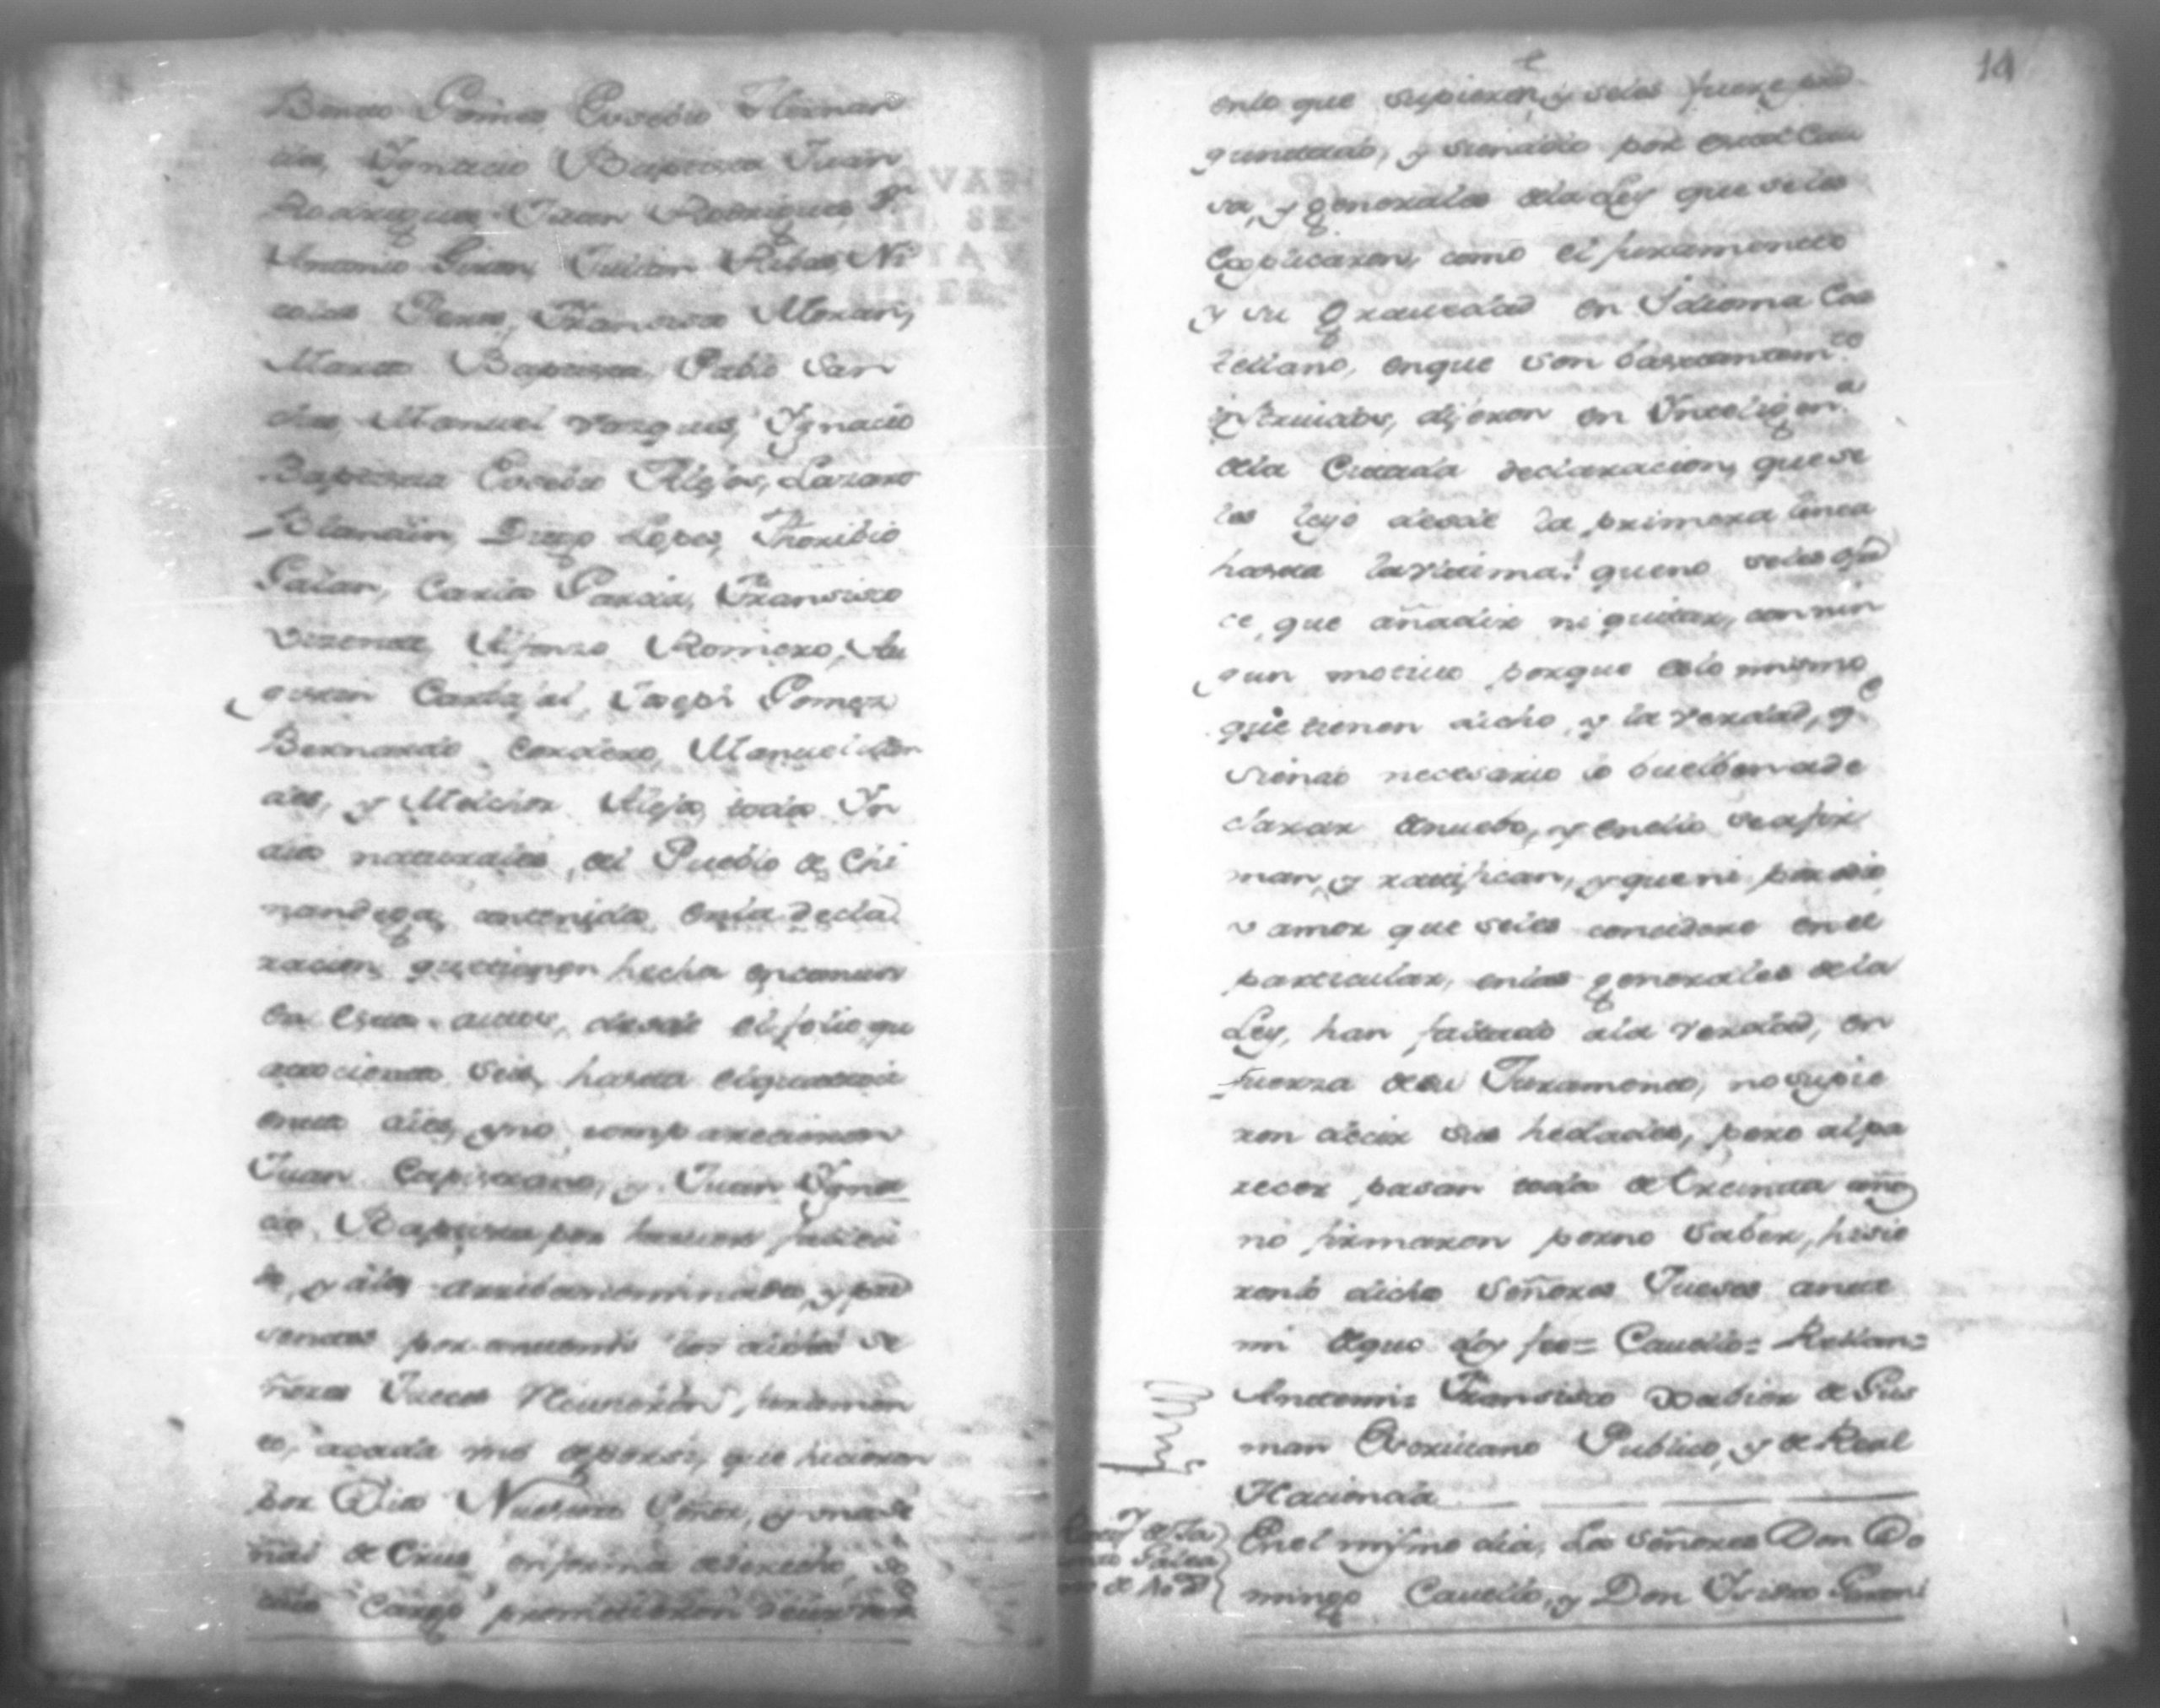 Gomes Eusebio Hernan
des, Ygnacio Baptista Juan
Rodrigues Juan Rodrigues,
Antonio Giron, Julian Ribas, Ni
colas Peres, Fransisco Moran,
Baptista Pablo San
ches Manuel Vasques, Ygnacio
Baptista Eusebio Alejos, Lazaro
Blandin, Diego Lopes, Thoribio
Galan, Carlos Garcia, Fransisco
Vizente, Alfonzo Romero, Au
gustin Carbajal, Joseph Gomez
Bernardo Cordero, Manuel
des, y Melchor Alejo, todos Yn
dios naturales, del Pueblo de Chi
nandega, contenidos, enla decla
racion, quetienen hecha
en estos autos, desde el folio qu
atrocientos seis, hasta elquatroci
entos dies, yno comparecieron
Juan Capistrano, y Juan Ygna
cio Baptista por haver falleci
do, y álos arribanominados, y pre
sentes por antemi los dichos Se
ñores Jueces Reciuieron juramen
to, acada uno deporsi, que hicieron
por Dios Nuestro Señor, y una se
ñal de Cruz enforma dederecho, so
cuio Cargo prometieron decir verd
14
enlo que supieren, y seles fuere pre
guntado, y siendolo por
sa, y generales dela Ley que seles
Explicaron, como el juramento
y su Grauedad en Ydioma Cas
tellano, enque son bastantemte
instruidos, dijeron en Ynteligena
dela Citada declaracion, que se
les leyo desde la primera linea
hasta laultima: queno seles ofre
ce, que añadir ni quitar, con nin
gun motiuo porque eslo mismo
que tienen dicho, y la verdad, qe
siendo necesario lo buelben ade
clarar denuebo, y enello seafir
man, y ratifican, yqueni por odio
o amor que seles considere enel
particular, enlas generales dela
Ley, han faltado ala verdad, en
fuerza desu Juramento, no supie
ron decir sus hedades, pero alpa
recer pasan todos detreinta años
no firmaron porno saber, hisie
ronlo dichos Señores Jueses ante
mi deque doy fee= Cauello= Rellan=
Antemi= Fransisco Xabier de Gus
man Escriuano Publico, y de Real
Hacienda
Enel mismo dia, Los Señores Don Do
mingo Cauello, y Don Isidro